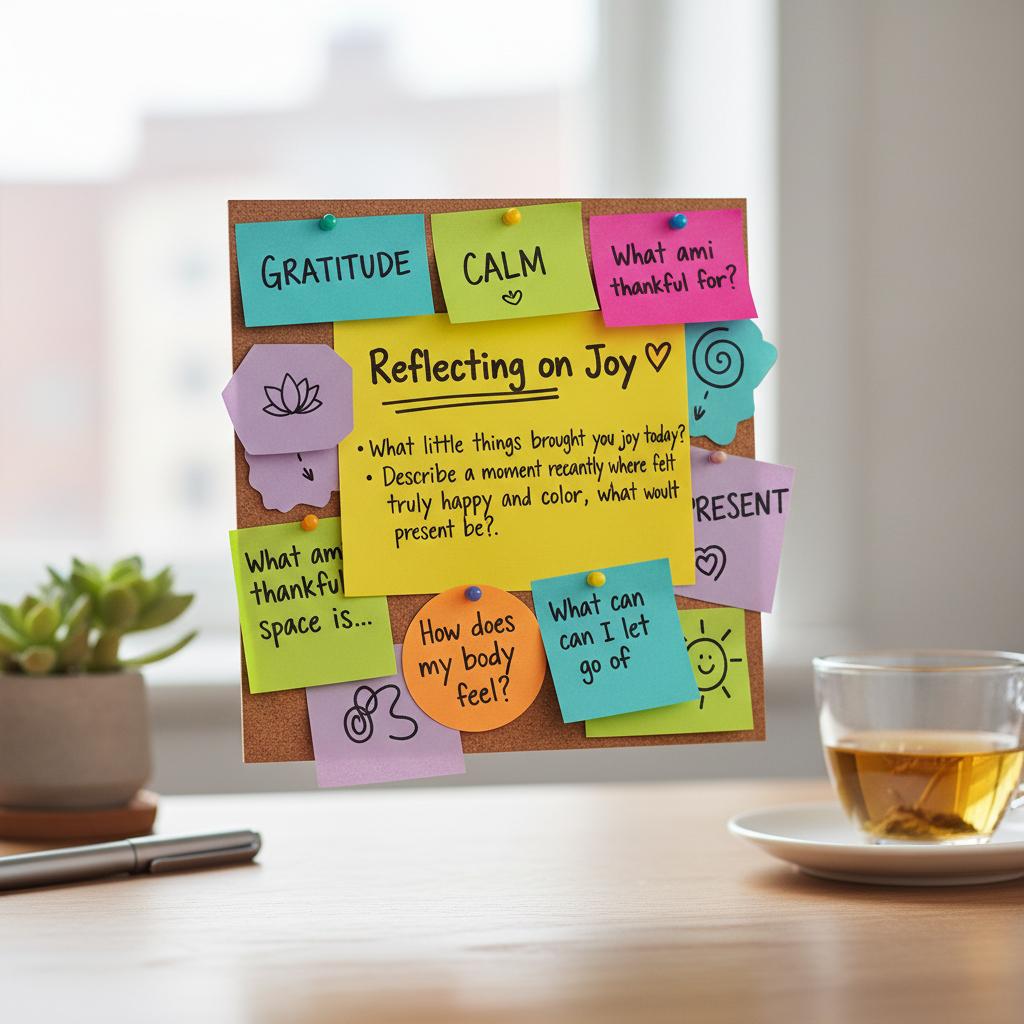 GRATITUDE
CALM
What ami
thankful for?
Reflecting on Joy
• What little things brought you joy today?
• Describe a moment recantly where felt
truly happy and color, what woult
present be?.
PRESENT
What am
thankful
space is...
How does
my body
feel?
What can
can I let
go of